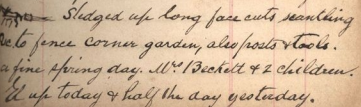 Sledged up long face cuts scantling
to fence corner garden, also posts & tools.
a fine spring day. Mrs Beckett & 2 children.
up today & half the day yesterday.